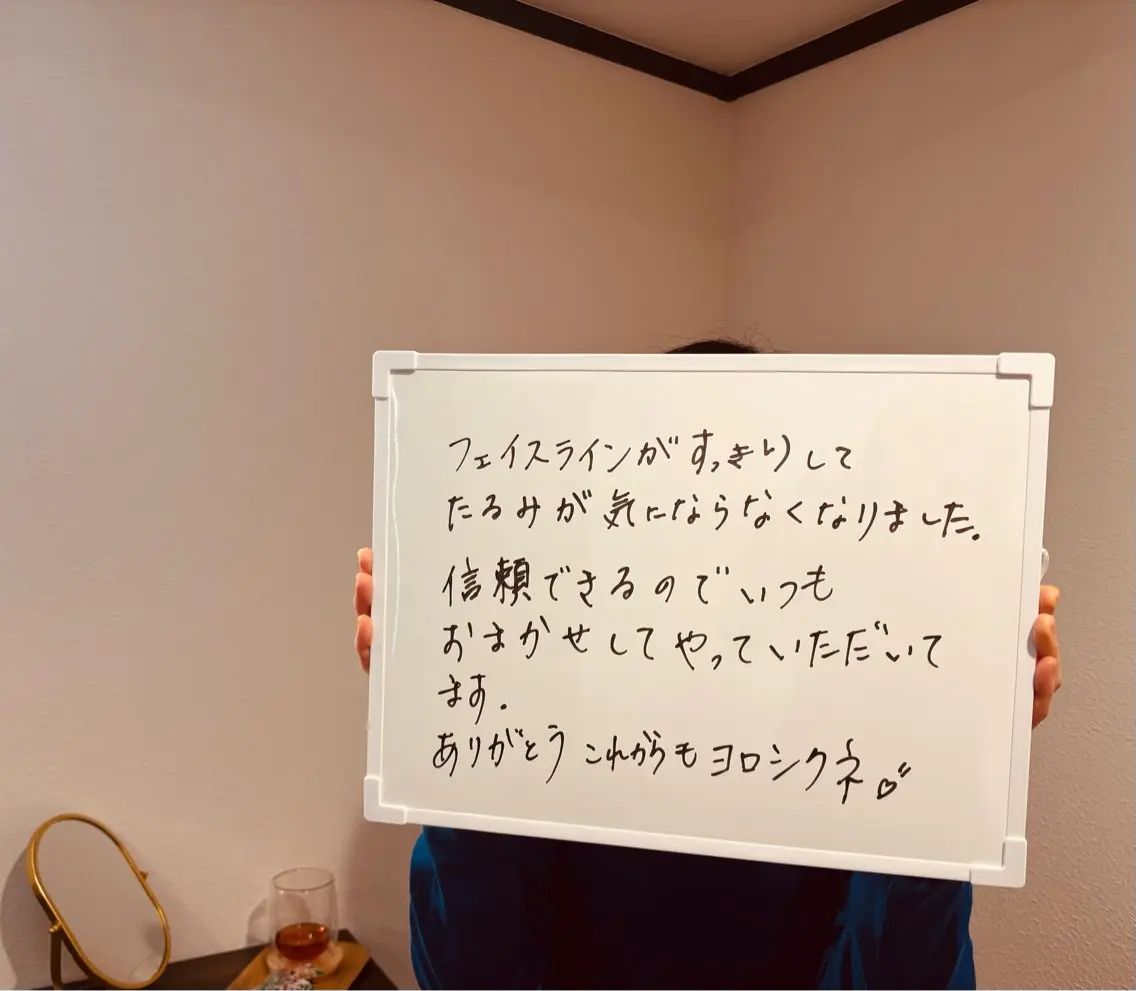 フェイスラインがすっきりして
たるみが気にならなくなりました。
信頼できるのでいつも
おまかせしてやっていただいて
ます。
ありがとう これからもヨロシクネ♡